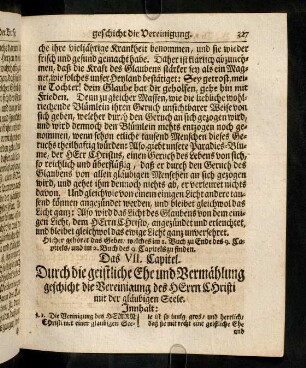 geschicht die Vereinigung. 327
che ihre vieljährige Kranckheit benommen, und sie wieder
frisch und gesund gemacht habe. Daher ist klärlich abzuneh-
men, daß die Kraft des Glaubens stärker sey als ein Mag-
net, wie solches unser Heyland bestätiget: Sey getrost, mei-
ne Tochter! dein Glaube hat dir geholfen, gehe hin mit
Frieden. Denn zu gleicher Massen, wie die liebliche wohl-
riechende Blümlein ihren Geruch unsichtbarer Weise von
sich geben, welcher durch den Geruch an sich gezogen wird,
und wird dennoch den Blümlein nichts entzogen noch ge-
nommen, wenn schon etliche tausend Menschen dieses Ge-
ruchs theilhaftig würden: Also giebt unsere Paradies-Blu-
me, der HErr Christus, einen Geruch des Lebens von sich,
so reichlich und überflüßig, daß er durch den Geruch des
Glaubens von allen gläubigen Menschen an sich gezogen
wird, und gehet ihm dennoch nichts ab, er verlieret nichts
davon. Und gleichwie von einem einigen Licht andere tau-
send können angezündet werden, und bleibet gleichwol das
Licht ganz: Also wird das Licht des Glaubens von dem eini-
gen Licht, dem HErrn Christo, angezündet und erleuchtet,
und bleibet gleichwol das ewige Licht ganz unversehret.
Hieher gehöret das Gebet, welches im 2. Buch zu Ende des 9. Ca-
pitels, und im 2. Buch des 9. Capitels zu finden.
Das VII. Capitel.
Durch die geistliche Ehe und Vermählung
geschicht die Vereinigung des HErrn Christi
mit der gläubigen Seele.
Innhalt:
§. 1. Die Vereinigung des HERRN
Christi mit einer gläubigen See-
le ist so innig, groß, und herrlich,
daß sie mit recht eine geistliche Ehe
und